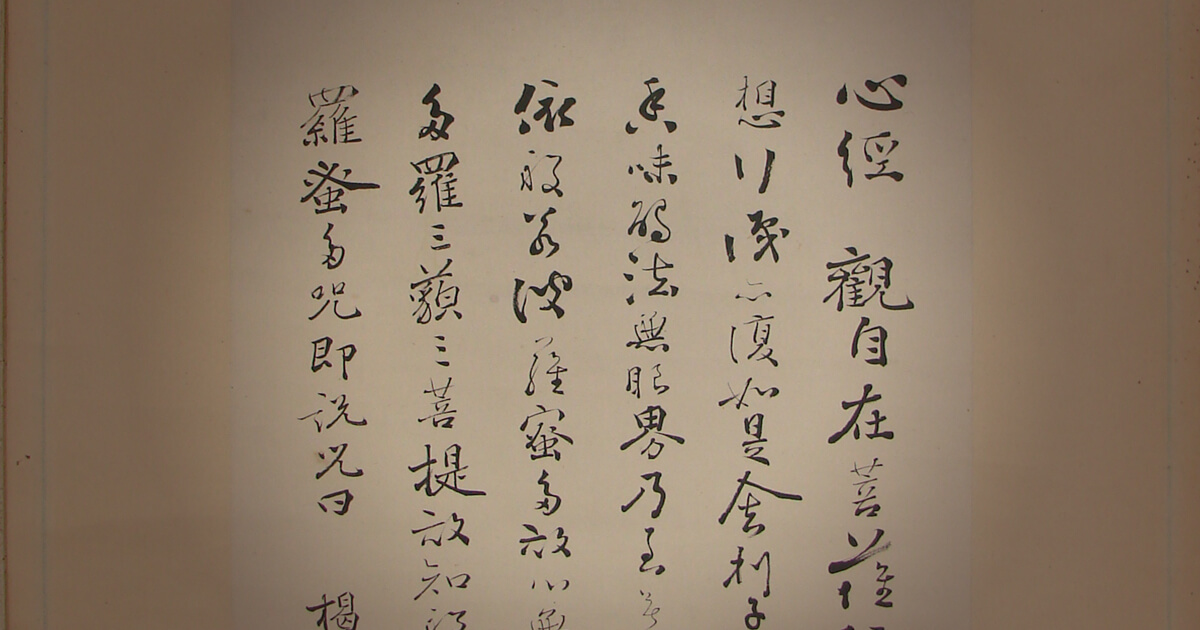 心經 觀自在菩薩
想行識亦復如是舍利子
香味觸法無眼界乃至
依般若波羅蜜多故心無
多羅三藐三菩提故知
羅蜜多咒即說咒曰 揭